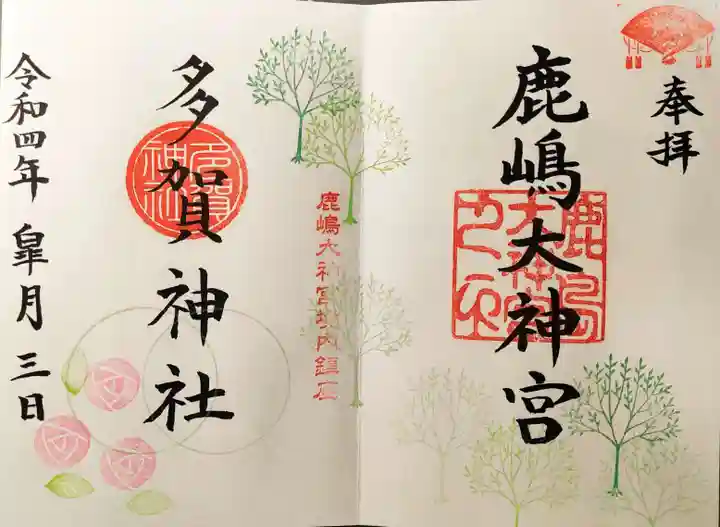 奉拝
鹿嶋大神宮
鹿島大神宮之印
鹿嶋大神宮境内鎮座
多賀神社
多賀神社
令和四年 皐月 三日